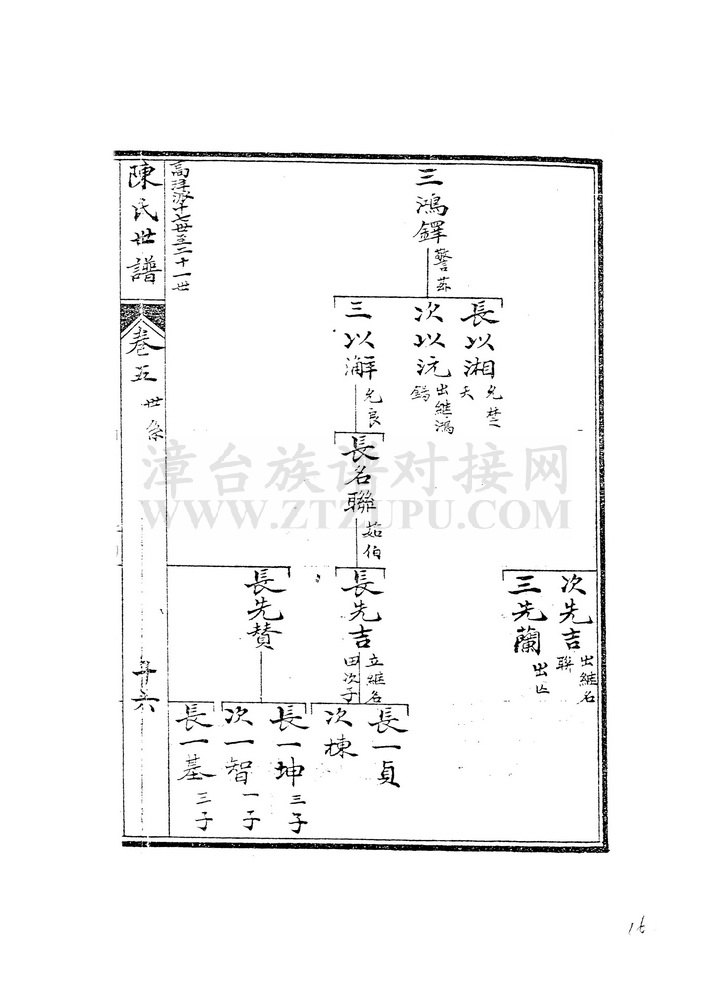 三鴻鐸
長以湘
允楚
夭
次以沅
出繼鴻
三以澥
允良
長名聯
茹伯
次先吉
出繼名
聯
三先蘭
長先吉
立繼名
田次子
長先贊
長一貞
次棟
長一坤 三子
次一智 一子
長一基 三子
高 派十七世至二十一世
陳氏世譜
卷五 世系
漳台族谱对接网
WWW.ZTZUPU.COM
16